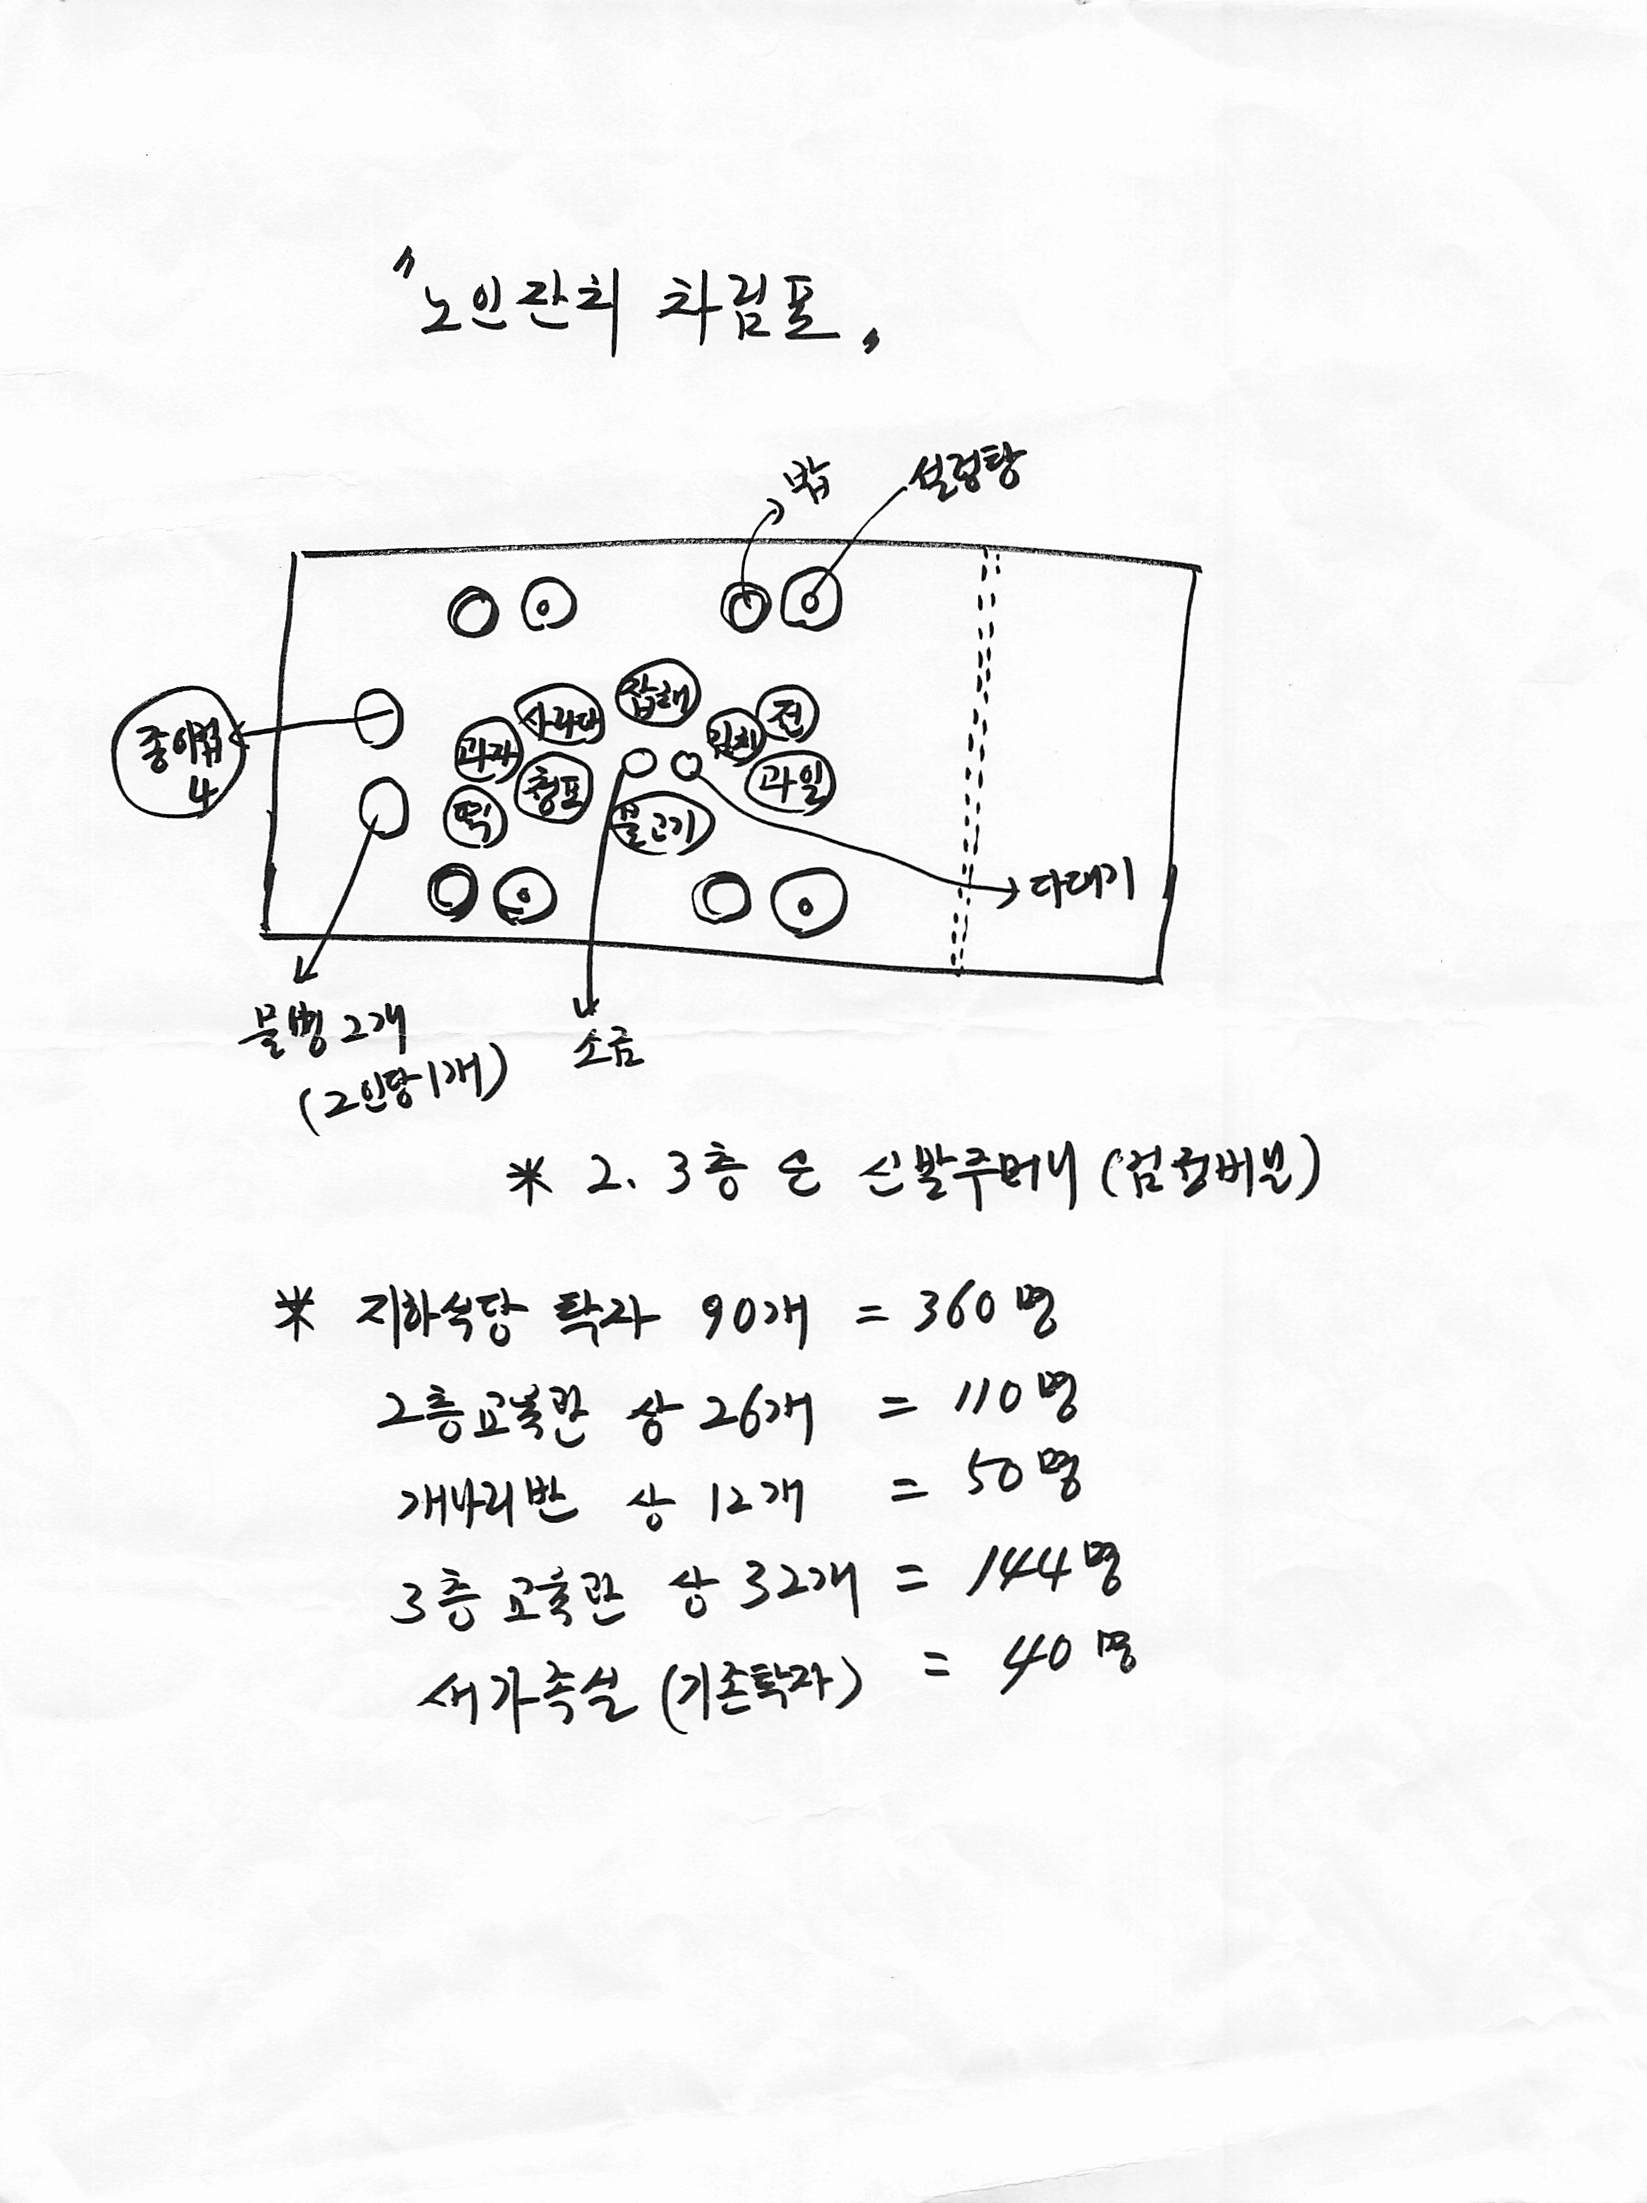 "노인잔치 차림표"
밥
설렁탕
잡채
사라다
전
김치
과자
종이컵
4
청포
과일
떡
불고기
다대기
물병 2개
(2인당 1개)
소금
* 2. 3층은 신발주머니 (검정비닐)
* 지하식당 탁자 90개 = 360명
2층교육관 상 26개 = 110명
개나리반 상 12개 = 50명
3층교육관 상 32개 = 144명
새가족실 (기존탁자) = 40명